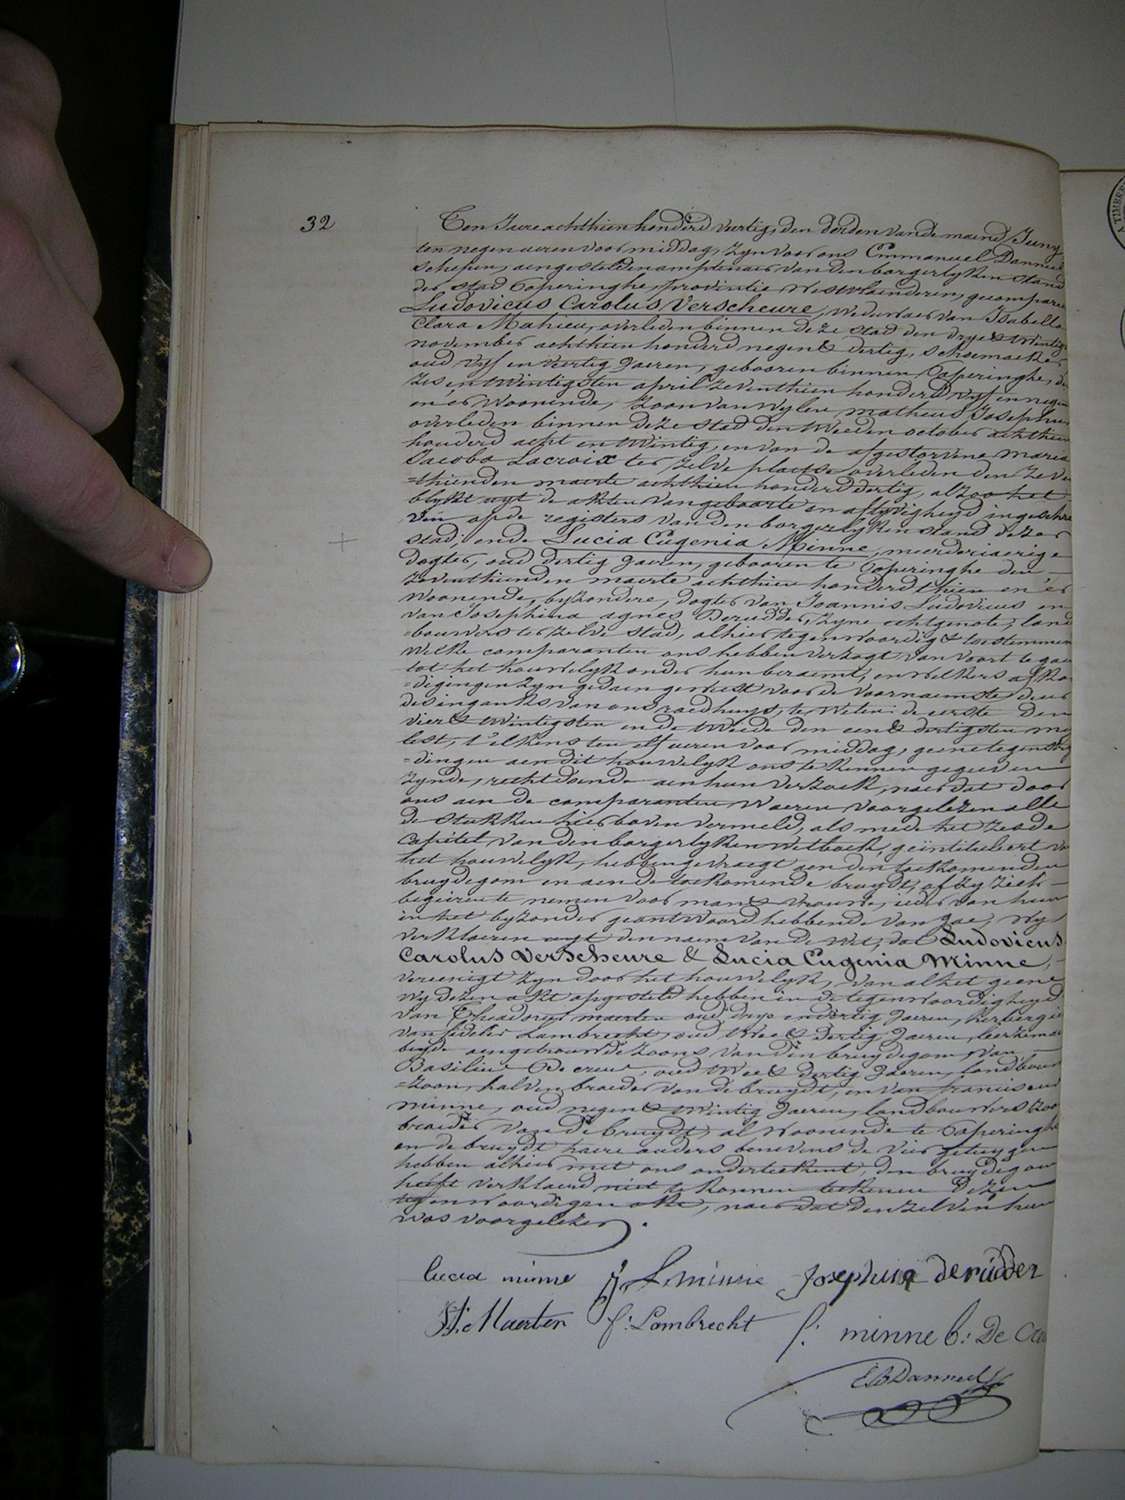 32
Ten Jaere achthien honderd veertig, den derden van de maend Juny
ten negen ueren voor middag, zyn voor ons Emmanuel Danneel
schepen, aengestelden amptenaer van den borgerlyken stand
der stad Poperinghe, provintie Westvlaenderen, gecompare
Ludovicus Carolus Verscheure, weduwaer van Isabella
Clara Mahieu, overleden binnen deze stad den drye & twintig
november achthien honderd negen & dertig, schoemaeker
oud vyf en veertig Jaeren, gebooren binnen Poperinghe, de
zes en twintigsten april zeventhien honderd vyf en neg
en er woonende, zoon van wylen matheus Josephus
overleden binnen deze stad den tweeden october achthien
honderd acht en twintig, en van de afgestorvene maria
Jacoba Lacroix ter zelve plaetse overleden den zeven
=thienden maerte achthien honderd dertig, alzoo het
blykt uyt de akten van geboorte en aflyvigheyd ingeschre
ven op de registers van den borgerlyken stand dezer
stad; ende Lucia Eugenia Minne, meerderjaerige
dogter, oud dertig Jaeren, gebooren te Poperinghe den
zeventhienden maerte achthien honderd thien en er
woonende, byzondere, dogter van Joannis Ludovicus en
van Josephina agnes Derudder, zyne echtgenote, land
=bouwers ter zelve stad, alhier tegenwoordig & toestemmen
welke comparanten ons hebben verzogt van voort te gaen
tot het houwelyk onder hun beraemt, en welkers afko
=digingen zyn gedaen geweest voor de voornaemste deur
des ingangs van ons raedhuys, te weten: de eerste den
vier & twintigsten en de tweede den een & dertigsten my
lest, t'elkens ten elf ueren voor middag, geene tegenstry
=dingen aen dit houwelyk ons te kennen gegeven
zynde, rechtdoende aen hun verzoek, naer dat door
ons aen de comparanten waeren voorgelezen alle
de stukken hier boven vermeld, als mede het zesde
capittel van den borgerlyken wetboek, geintituleert va
het houwelyk, hebben gevraegt aen den toekomenden
bruydegom en aen de toekomende bruydt, of zy zich
begeiren te nemen voor man & vrouw, ieder van hun
in het byzonder geantwoord hebbende van Jae, Wy
verklaeren uyt den naem van de wet, dat Ludovicus
Carolus Verscheure & Lucia Eugenia Minne,
vereenigt zyn door het houwelyk, van al het geene
wy dezen akt opgesteld hebben in de tegenwoordigheyd
van Theodorus maerten oud drye en dertig Jaeren, herbergie
van fidelis Lambrecht, oud twee & dertig Jaeren,
beyde aengetrouwde zoons van den bruydegom, van
Basilius De creu, oud twee & dertig Jaeren, landbouwers
=zoon, halven broeder van de bruydt, en van franciscus
minne, oud negen & twintig Jaeren, landbouwers zoon
broeder van de bruydt, al woonende te Poperinghe
en de bruydt haere ouders benevens de vier getuygen
hebben alhier met ons onderteekent, den bruydegom
heeft verklaerd niet te konnen teekenen dezen
tegenwoordigen akt, naer dat den zelven hun
was voorgelezen.
lucia minne J. L. minne Josephina derudder
Maerten f: Lambrecht f: minne b: De Cre
E B Danneel